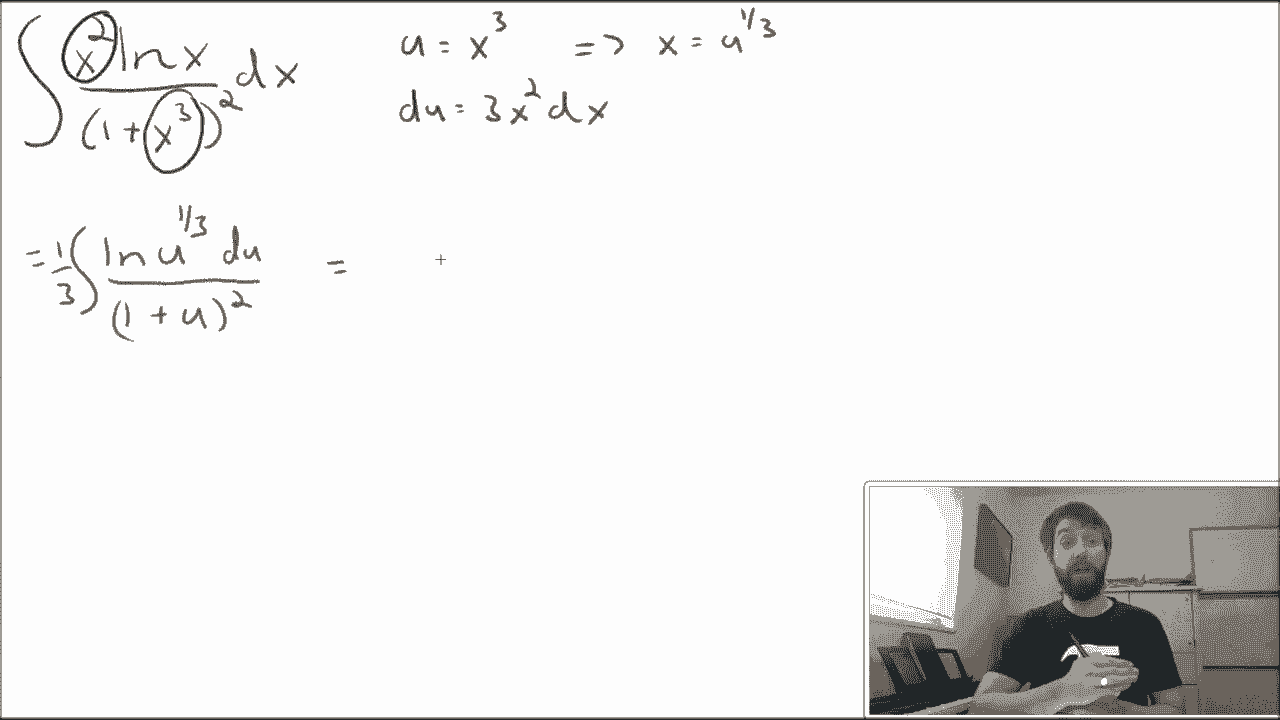 ∫ x² ln x / (1 + x³)² dx    u = x³    => x = u^1/3
du = 3x² dx
= 1/3 ∫ ln u^1/3 du / (1 + u)²    =